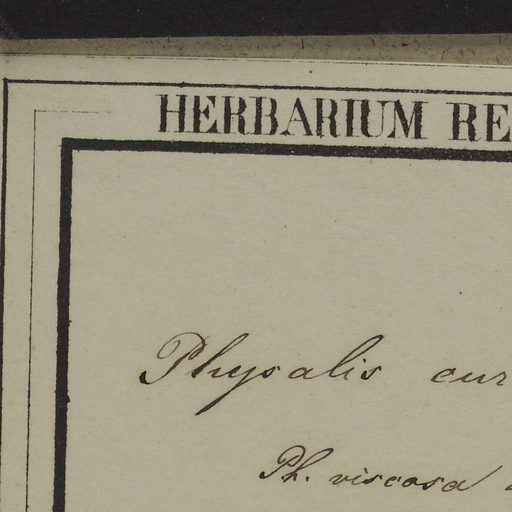 HERBARIUM RE
Physalis cur
Ph. viscosa